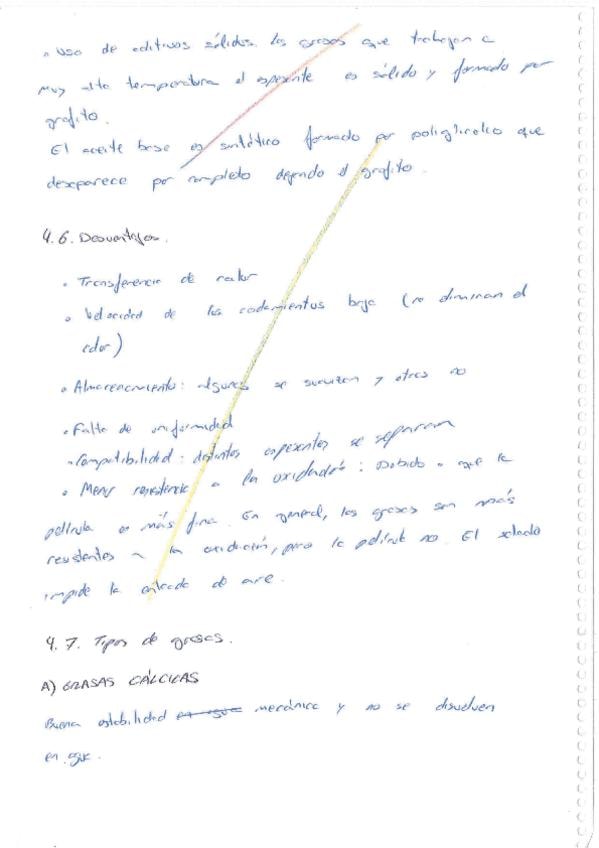 • Uso de aditivos sólidos. las grasas que trabajan a
muy alta temperatura el espesante es sólido y formado por
grafito.
El aceite base es sintético formado por poliglicoles que
desaparece por completo dejando el grafito.
4.6. Desventajas.
• Transferencia de calor
• Velocidad de los rodamientos baja (no eliminan el
calor)
• Almacenamiento: algunas se suavizan y otras no
• Falta de uniformidad
• Compatibilidad: distintos espesantes se separan
• Menor resistencia a la oxidación: Debido a que la
película es más fina. En general, las grasas son más
resistentes a la oxidación, pero la película no. El sellado
impide la entrada de aire.
4.7. Tipos de grasas.
A) GRASAS CÁLCICAS
Buena estabilidad mecánica y no se disuelven
en agua.